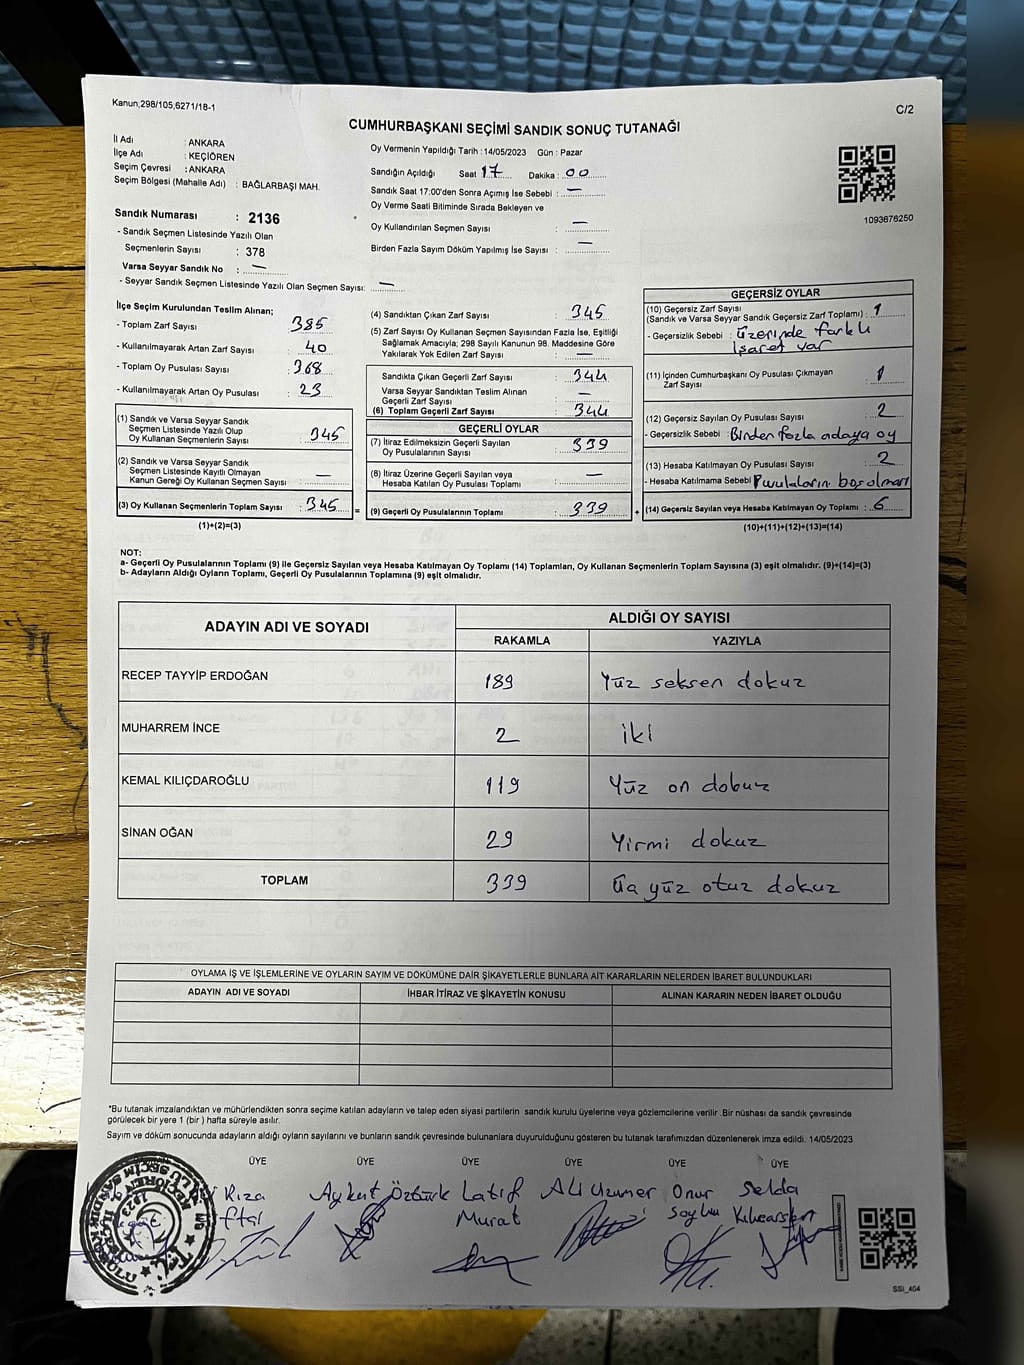 Kanun,298/105,6271/18-1
C/2
CUMHURBAŞKANI SEÇİMİ SANDIK SONUÇ TUTANAĞI
İl Adı : ANKARA
İlçe Adı : KEÇİÖREN
Seçim Çevresi : ANKARA
Seçim Bölgesi (Mahalle Adı) : BAĞLARBAŞI MAH.
Oy Vermenin Yapıldığı Tarih : 14/05/2023 Gün : Pazar
Sandığın Açıldığı Saat 17 Dakika : 00
Sandık Saat 17:00'den Sonra Açımış İse Sebebi : —
Oy Verme Saati Bitiminde Sırada Bekleyen ve
Oy Kullandırılan Seçmen Sayısı : —
Birden Fazla Sayım Döküm Yapılmış İse Sayısı : —
1093676250
Sandık Numarası : 2136
- Sandık Seçmen Listesinde Yazılı Olan
Seçmenlerin Sayısı : 378
Varsa Seyyar Sandık No : —
- Seyyar Sandık Seçmen Listesinde Yazılı Olan Seçmen Sayısı: —
İlçe Seçim Kurulundan Teslim Alınan;
- Toplam Zarf Sayısı : 385
- Kullanılmayarak Artan Zarf Sayısı : 40
- Toplam Oy Pusulası Sayısı : 368
- Kullanılmayarak Artan Oy Pusulası : 23
(1) Sandık ve Varsa Seyyar Sandık
Seçmen Listesinde Yazılı Olup
Oy Kullanan Seçmenlerin Sayısı : 345
(2) Sandık ve Varsa Seyyar Sandık
Seçmen Listesinde Kayıtlı Olmayan
Kanun Gereği Oy Kullanan Seçmen Sayısı : —
(3) Oy Kullanan Seçmenlerin Toplam Sayısı : 345 =
(1)+(2)=(3)
(4) Sandıktan Çıkan Zarf Sayısı : 345
(5) Zarf Sayısı Oy Kullanan Seçmen Sayısından Fazla İse, Eşitliği
Sağlamak Amacıyla; 298 Sayılı Kanunun 98. Maddesine Göre
Yakılarak Yok Edilen Zarf Sayısı : —
Sandıkta Çıkan Geçerli Zarf Sayısı : 344
Varsa Seyyar Sandıktan Teslim Alınan
Geçerli Zarf Sayısı : —
(6) Toplam Geçerli Zarf Sayısı : 344
GEÇERLİ OYLAR
(7) İtiraz Edilmeksizin Geçerli Sayılan
Oy Pusulalarının Sayısı : 339
(8) İtiraz Üzerine Geçerli Sayılan veya
Hesaba Katılan Oy Pusulası Toplamı : —
(9) Geçerli Oy Pusulalarının Toplamı : 339 +
GEÇERSİZ OYLAR
(10) Geçersiz Zarf Sayısı
(Sandık ve Varsa Seyyar Sandık Geçersiz Zarf Toplamı) : 1
- Geçersizlik Sebebi : üzerinde farklı
işaret var
(11) İçinden Cumhurbaşkanı Oy Pusulası Çıkmayan
Zarf Sayısı : 1
(12) Geçersiz Sayılan Oy Pusulası Sayısı : 2
- Geçersizlik Sebebi : Birden fazla adaya oy
(13) Hesaba Katılmayan Oy Pusulası Sayısı : 2
- Hesaba Katılmama Sebebi : Pusulaların boş olması
(14) Geçersiz Sayılan veya Hesaba Katılmayan Oy Toplamı : 6
(10)+(11)+(12)+(13)=(14)
NOT:
a- Geçerli Oy Pusulalarının Toplamı (9) ile Geçersiz Sayılan veya Hesaba Katılmayan Oy Toplamı (14) Toplamları, Oy Kullanan Seçmenlerin Toplam Sayısına (3) eşit olmalıdır. (9)+(14)=(3)
b- Adayların Aldığı Oyların Toplamı, Geçerli Oy Pusulalarının Toplamına (9) eşit olmalıdır.
ADAYIN ADI VE SOYADI ALDIĞI OY SAYISI
RAKAMLA YAZIYLA
RECEP TAYYİP ERDOĞAN 189 Yüz seksen dokuz
MUHARREM İNCE 2 iki
KEMAL KILIÇDAROĞLU 119 Yüz on dokuz
SİNAN OĞAN 29 Yirmi dokuz
TOPLAM 339 Üç yüz otuz dokuz
OYLAMA İŞ VE İŞLEMLERİNE VE OYLARIN SAYIM VE DÖKÜMÜNE DAİR ŞİKAYETLERLE BUNLARA AİT KARARLARIN NELERDEN İBARET BULUNDUKLARI
ADAYIN ADI VE SOYADI İHBAR İTİRAZ VE ŞİKAYETİN KONUSU ALINAN KARARIN NEDEN İBARET OLDUĞU
*Bu tutanak imzalandıktan ve mühürlendikten sonra seçime katılan adayların ve talep eden siyasi partilerin sandık kurulu üyelerine veya gözlemcilerine verilir .Bir nüshası da sandık çevresinde
görülecek bir yere 1 (bir ) hafta süreyle asılır.
Sayım ve döküm sonucunda adayların aldığı oyların sayılarını ve bunların sandık çevresinde bulunanlara duyurulduğunu gösteren bu tutanak tarafımızdan düzenlenerek imza edildi. 14/05/2023
ÜYE ÜYE ÜYE ÜYE ÜYE ÜYE
Rıza Aykut Öztürk Latif Ali Uzuner Onur Selda
Murat Soylu Kılıcarslan
SSİ_404